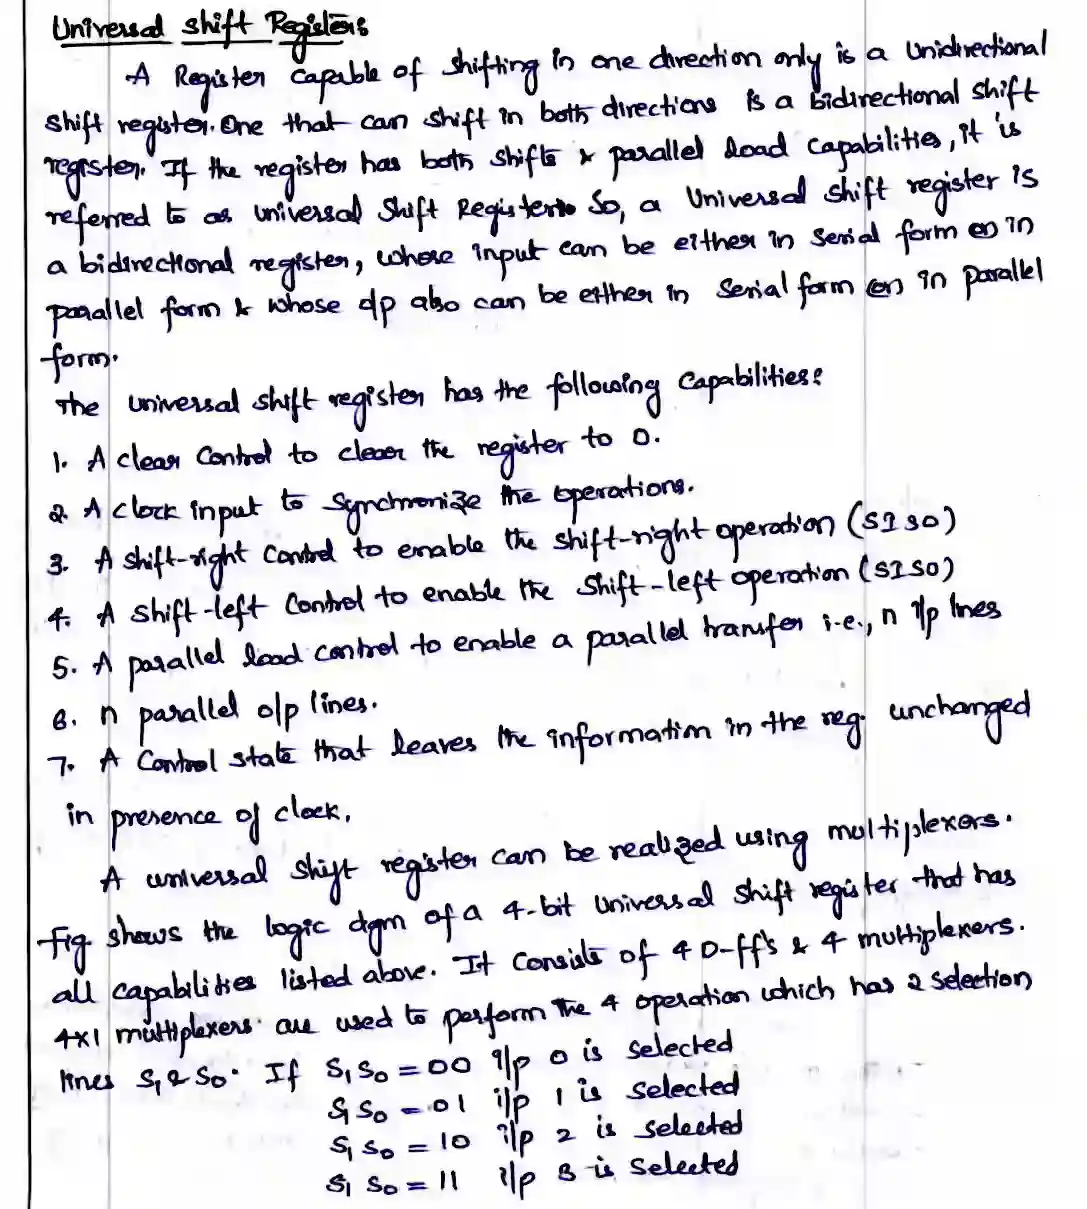 Universal Shift Registers
A Register capable of shifting in one direction only is a Unidirectional
shift register. One that can shift in both directions is a bidirectional shift
register. If the register has both shifts & parallel load capabilities, it is
referred to as universal Shift Register. So, a Universal shift register is
a bidirectional register, whose input can be either in serial form or in
parallel form & whose o/p also can be either in serial form (or) in parallel
form.
The universal shift register has the following capabilities:
1. A clear control to clear the register to 0.
2. A clock input to synchronize the operations.
3. A shift-right control to enable the shift-right operation (SISO)
4. A shift-left control to enable the shift-left operation (SISO)
5. A parallel load control to enable a parallel transfer i.e., n i/p lines
6. n parallel o/p lines.
7. A Control state that leaves the information in the reg. unchanged
in presence of clock.
A universal shift register can be realized using multiplexers.
Fig. shows the logic dgm of a 4-bit Universal shift register that has
all capabilities listed above. It consists of 4 D-ff's & 4 multiplexers.
4x1 multiplexers are used to perform the 4 operation which has 2 selection
lines S1 & S0. If S1 S0 = 00 i/p 0 is selected
S1 S0 = 01 i/p 1 is selected
S1 S0 = 10 i/p 2 is selected
S1 S0 = 11 i/p 3 is selected